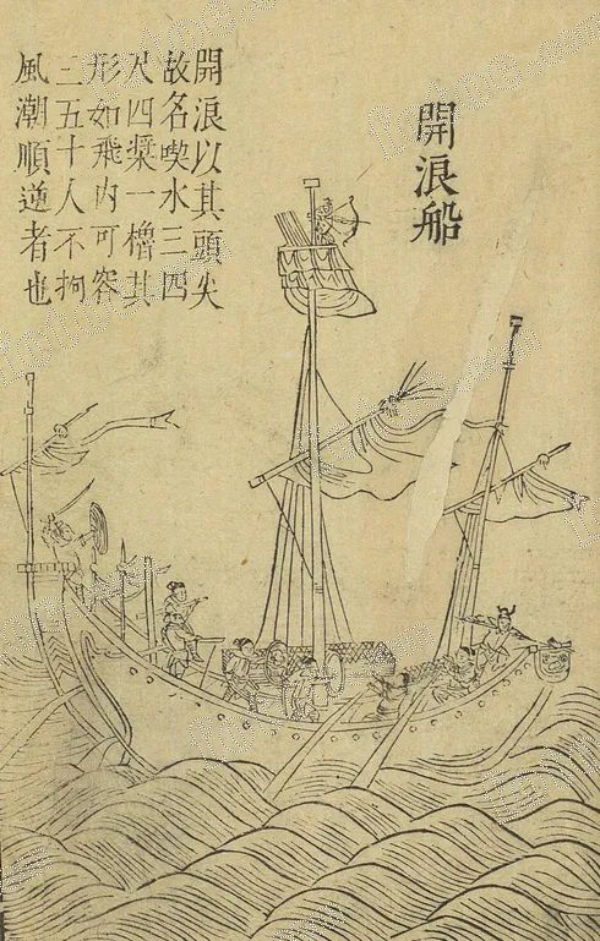 開浪船
開浪以其頭尖
故名喫水三四
尺四槳一櫓其
形如飛内可容
三五十人不拘
風潮順逆者也